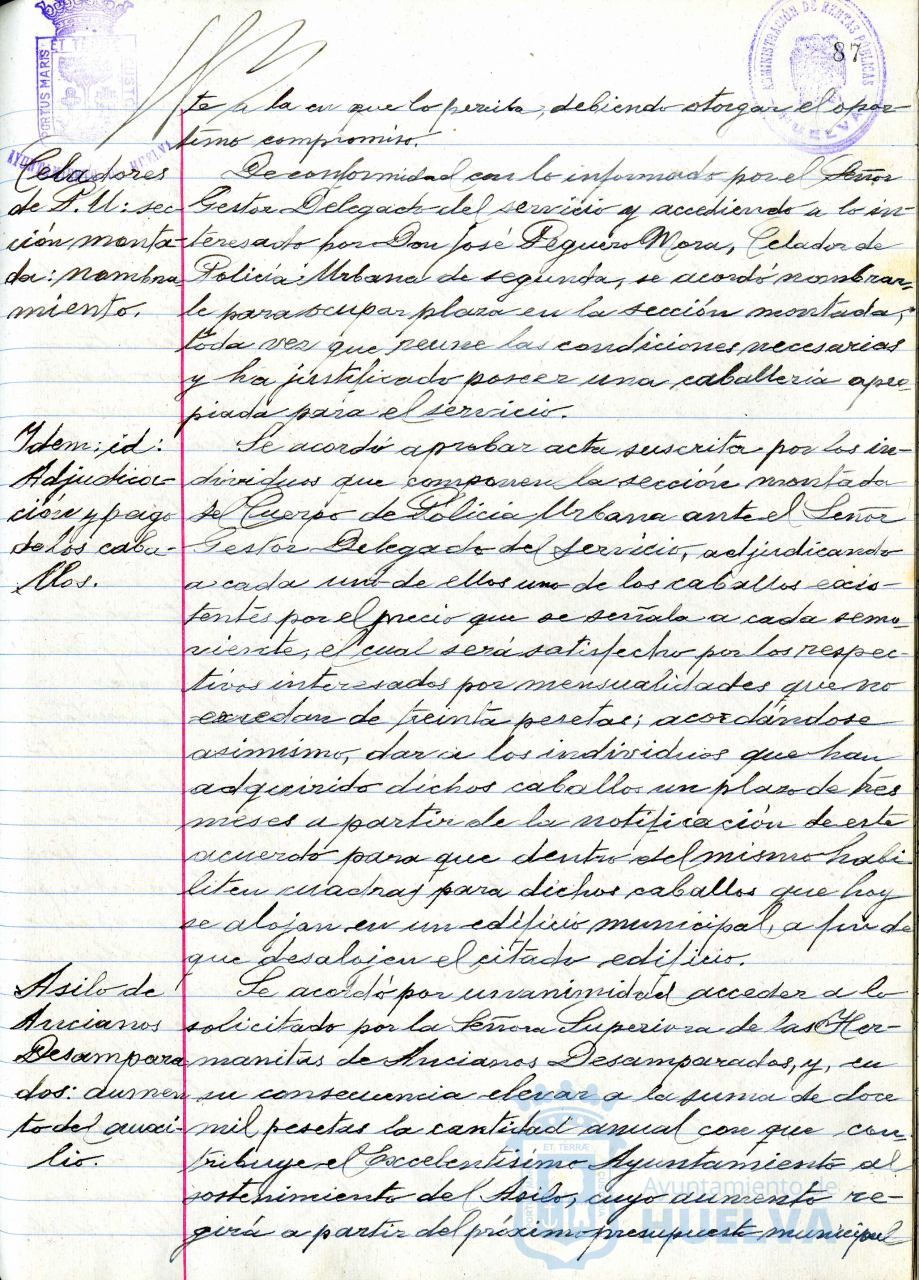 87
PORTUS MARIS ET TERRÆ CUSTODIA
AYUNTAMIENTO HUELVA
ADMINISTRACIÓN DE RENTAS PÚBLICAS
HUELVA
te a la en que lo perciba, debiendo otorgar el opor-
tuno compromiso.
Celadores
de P. U: sec-
ción monta-
da: nombra
miento.
De conformidad con lo informado por el Señor
Gestor Delegado del servicio y accediendo a lo in-
teresado por Don José Peguero Mora, Celador de
Policía Urbana de segunda, se acordó nombrar-
le para ocupar plaza en la sección montada,
toda vez que reune las condiciones necesarias
y ha justificado poseer una caballería apro-
piada para el servicio.
Idem; id:
Adjudica-
ción y pago
de los caba-
llos.
Se acordó aprobar acta suscrita por los in-
dividuos que componen la sección montada
del Cuerpo de Policía Urbana ante el Señor
Gestor Delegado del servicio, adjudicando
a cada uno de ellos uno de los caballos exis-
tentes por el precio que se señala a cada semo-
viente, el cual será satisfecho por los respec-
tivos interesados por mensualidades que no
excedan de treinta pesetas; acordándose
asimismo, dar a los individuos que han
adquirido dichos caballos un plazo de tres
meses a partir de la notificación de este
acuerdo para que dentro del mismo habi
liten cuadras para dichos caballos que hoy
se alojan en un edificio municipal, a fin de
que desalojen el citado edificio.
Asilo de
Ancianos
Desampara
dos: aumen
to del auxi-
lio.
Se acordó por unanimidad acceder a lo
solicitado por la Señora Superiora de las Her-
manitas de Ancianos Desamparados, y, en
su consecuencia elevar a la suma de doce
mil pesetas la cantidad anual con que con-
tribuye el Excelentísimo Ayuntamiento al
sostenimiento del Asilo, cuyo aumento re-
girá a partir del próximo presupuesto municipal
ET TERRÆ
Ayuntamiento de
HUELVA